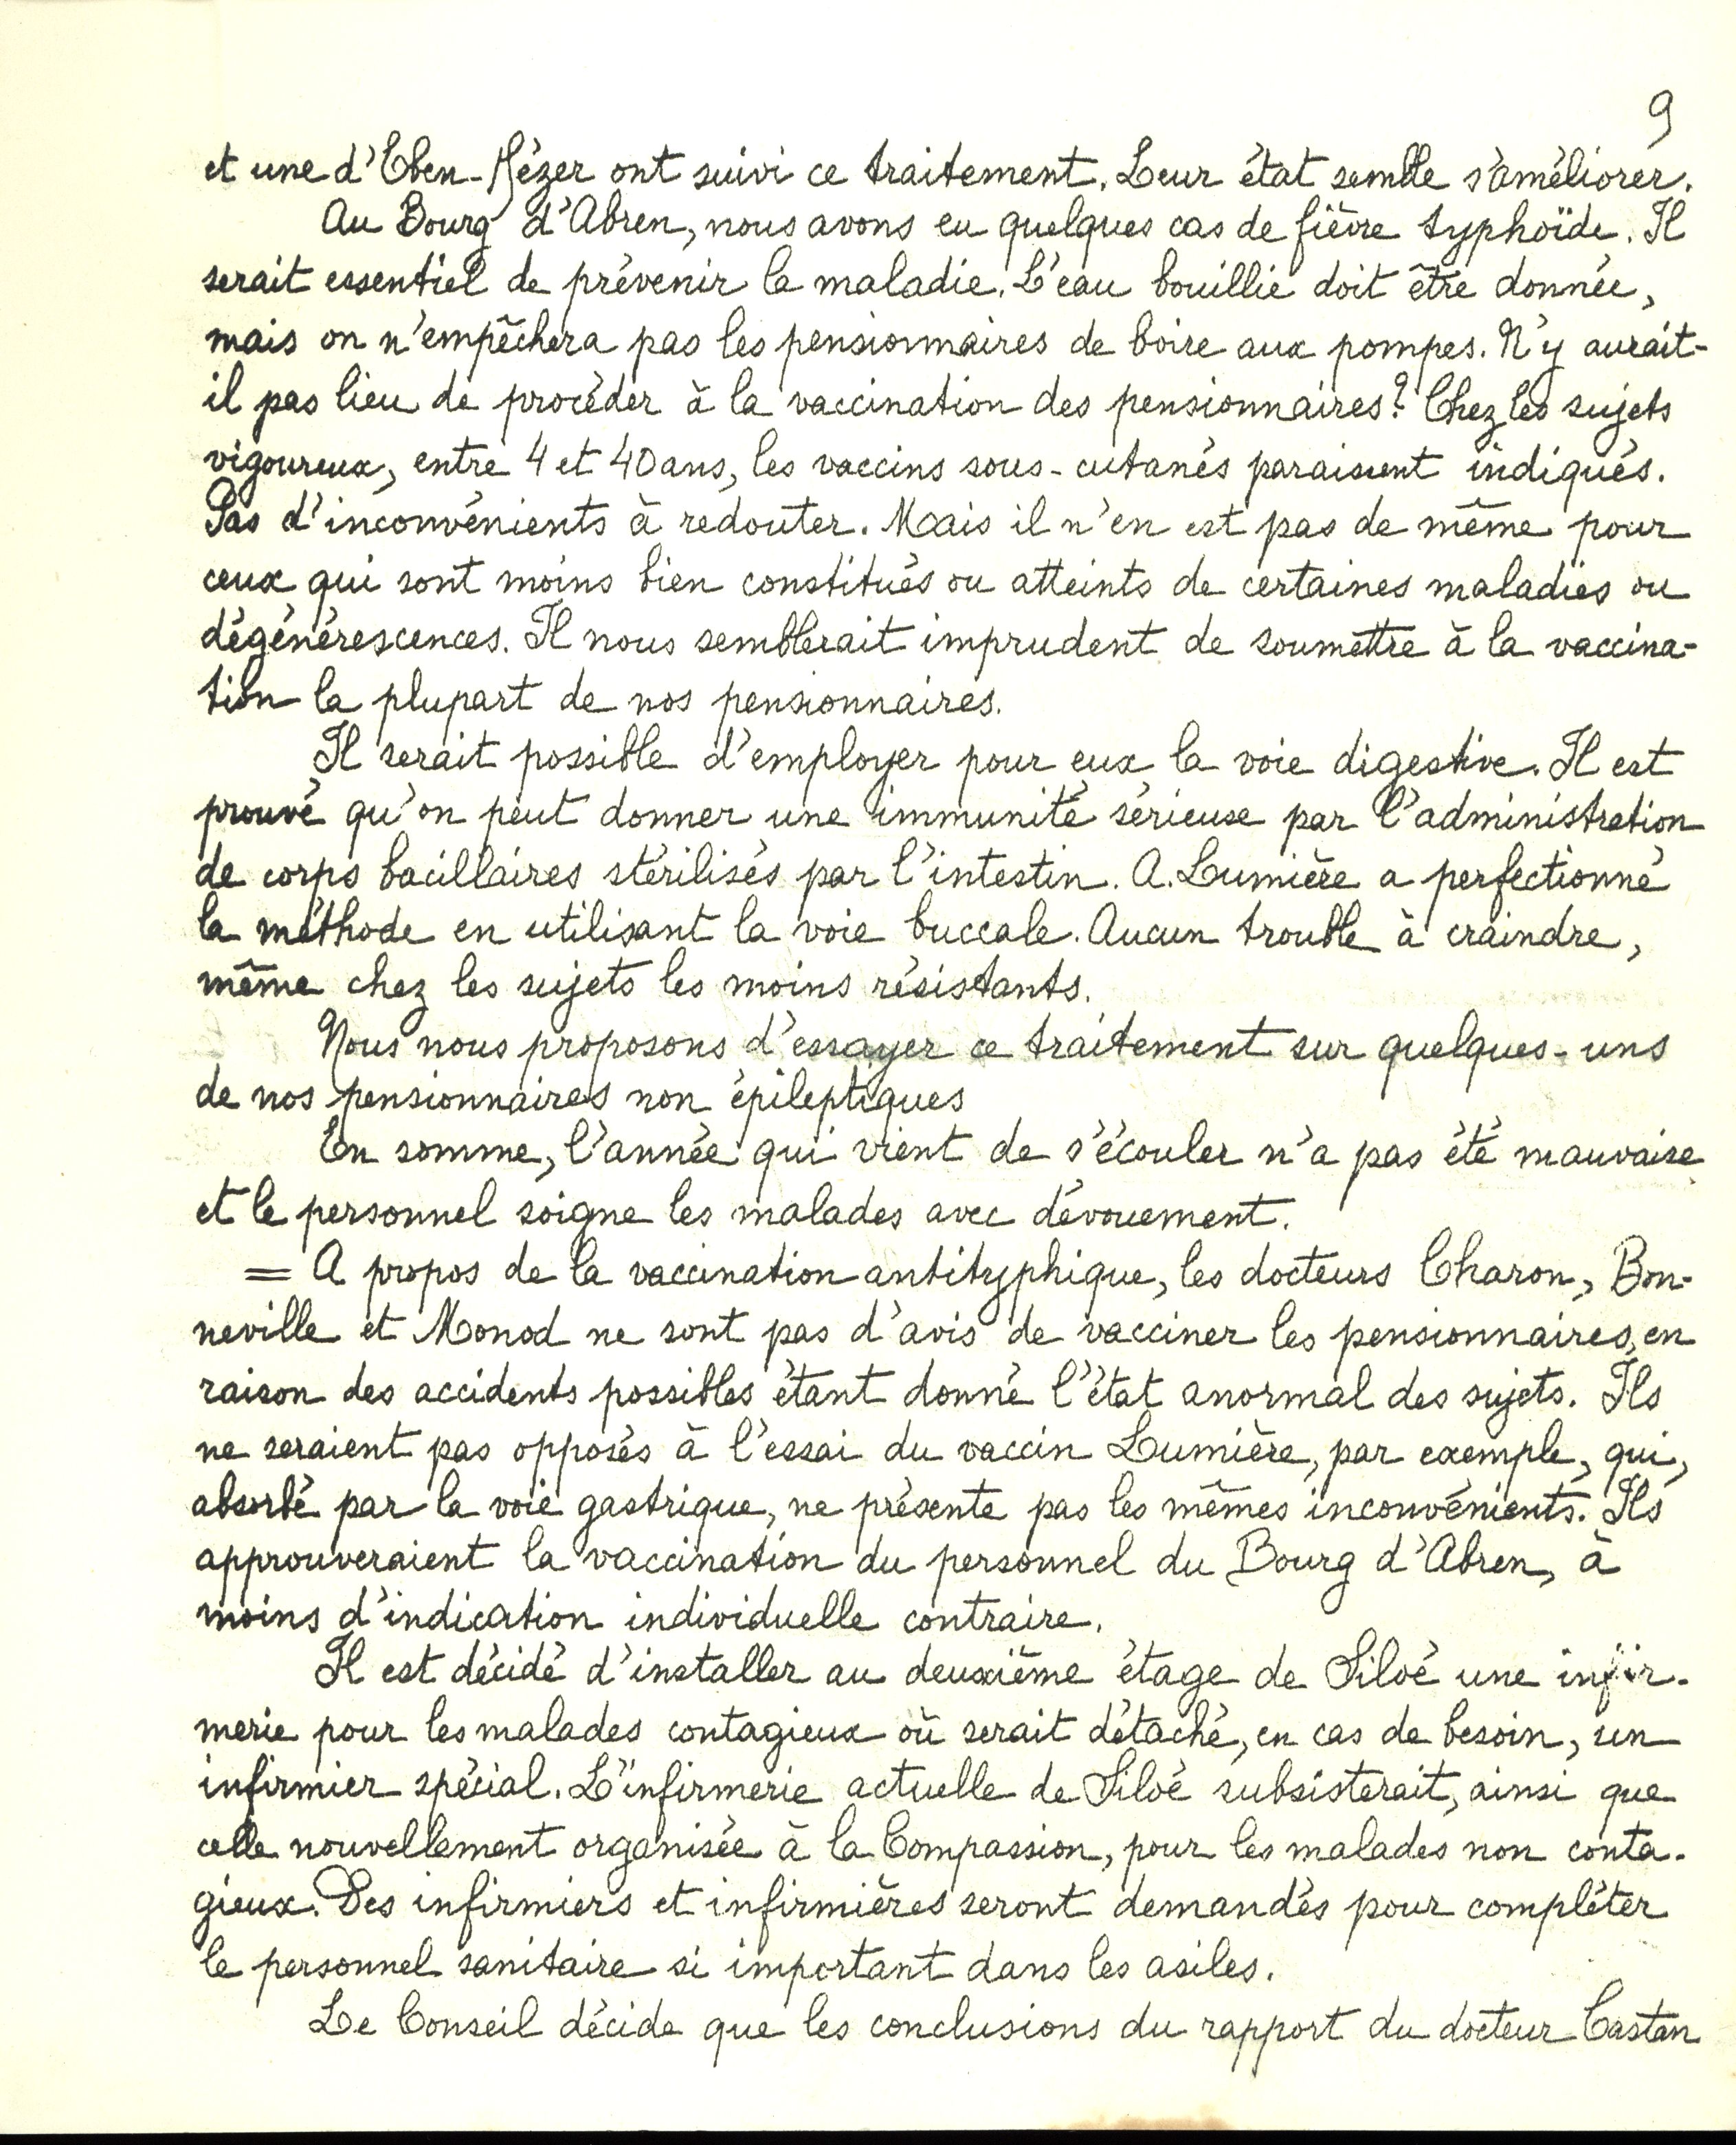 9
et une d'Eben-Hézer ont suivi ce traitement. Leur état semble s'améliorer.
Au Bourg d'Abren, nous avons eu quelques cas de fièvre typhoïde. Il
serait essentiel de prévenir la maladie. L'eau bouillie doit être donnée,
mais on n'empêchera pas les pensionnaires de boire aux pompes. N'y aurait-
il pas lieu de procéder à la vaccination des pensionnaires? Chez les sujets
vigoureux, entre 4 et 40 ans, les vaccins sous-cutanés paraissent indiqués.
Pas d'inconvénients à redouter. Mais il n'en est pas de même pour
ceux qui sont moins bien constitués ou atteints de certaines maladies ou
dégénérescences. Il nous semblerait imprudent de soumettre à la vaccina-
tion la plupart de nos pensionnaires.
Il serait possible d'employer pour eux la voie digestive. Il est
prouvé qu'on peut donner une immunité sérieuse par l'administration
de corps bacillaires stérilisés par l'intestin. A. Lumière a perfectionné
la méthode en utilisant la voie buccale. Aucun trouble à craindre,
même chez les sujets les moins résistants.
Nous nous proposons d'essayer ce traitement sur quelques-uns
de nos pensionnaires non épileptiques
En somme, l'année qui vient de s'écouler n'a pas été mauvaise
et le personnel soigne les malades avec dévouement.
= A propos de la vaccination antityphique, les docteurs Charon, Bon-
neville et Monod ne sont pas d'avis de vacciner les pensionnaires, en
raison des accidents possibles étant donné l'état anormal des sujets. Ils
ne seraient pas opposés à l'essai du vaccin Lumière, par exemple, qui,
absorbé par la voie gastrique, ne présente pas les mêmes inconvénients. Ils
approuveraient la vaccination du personnel du Bourg d'Abren, à
moins d'indication individuelle contraire.
Il est décidé d'installer au deuxième étage de Siloé une infir-
merie pour les malades contagieux où serait détaché, en cas de besoin, un
infirmier spécial. L'infirmerie actuelle de Siloé subsisterait, ainsi que
celle nouvellement organisée à la Compassion, pour les malades non conta-
gieux. Des infirmiers et infirmières seront demandés pour compléter
le personnel sanitaire si important dans les asiles.
Le Conseil décide que les conclusions du rapport du docteur Castan